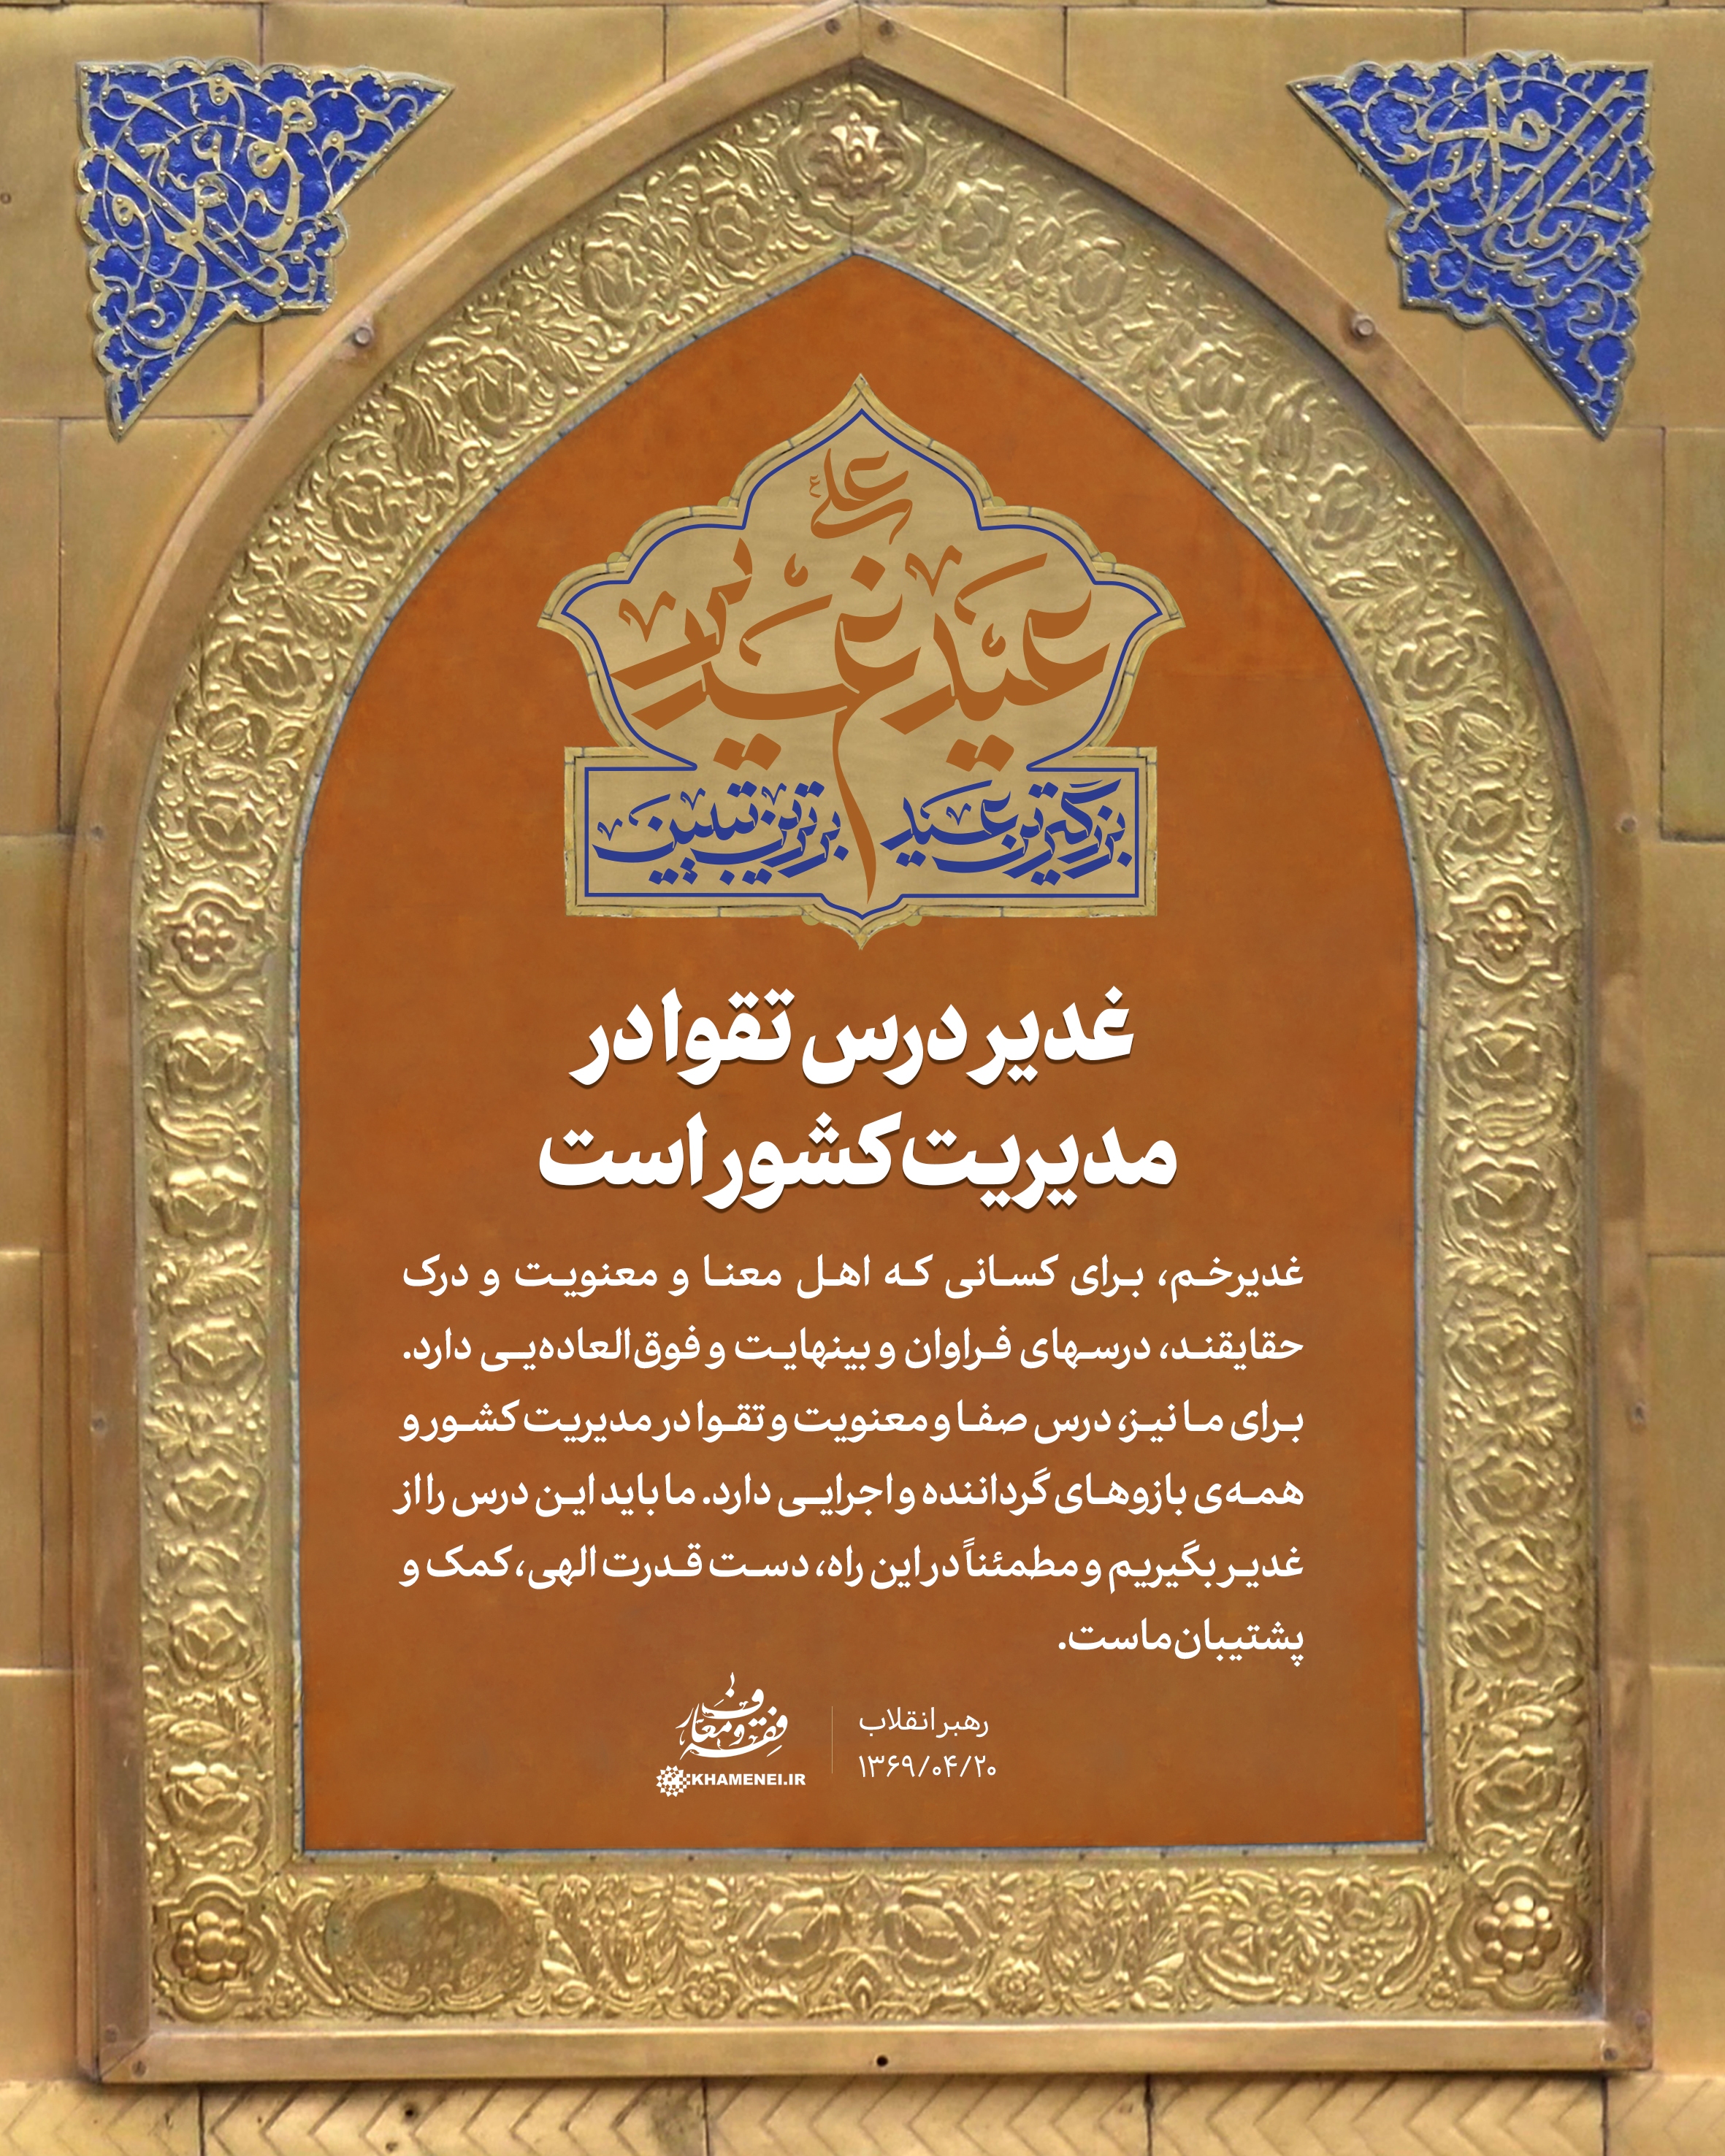 علی
عید غدیر
بزرگترین عید برترین تبیین
غدیر درس تقوا در
مدیریت کشور است
غدیرخم، برای کسانی که اهل معنا و معنویت و درک
حقایقند، درسهای فراوان و بینهایت و فوق‌العاده‌یی دارد.
برای ما نیز، درس صفا و معنویت و تقوا در مدیریت کشور و
همه‌ی بازوهای گرداننده و اجرایی دارد. ما باید این درس را از
غدیر بگیریم و مطمئناً در این راه، دست قدرت الهی، کمک و
پشتیبان ماست.
رهبر انقلاب
۱۳۶۹/۰۴/۲۰
فقه و معارف
KHAMENEI.IR